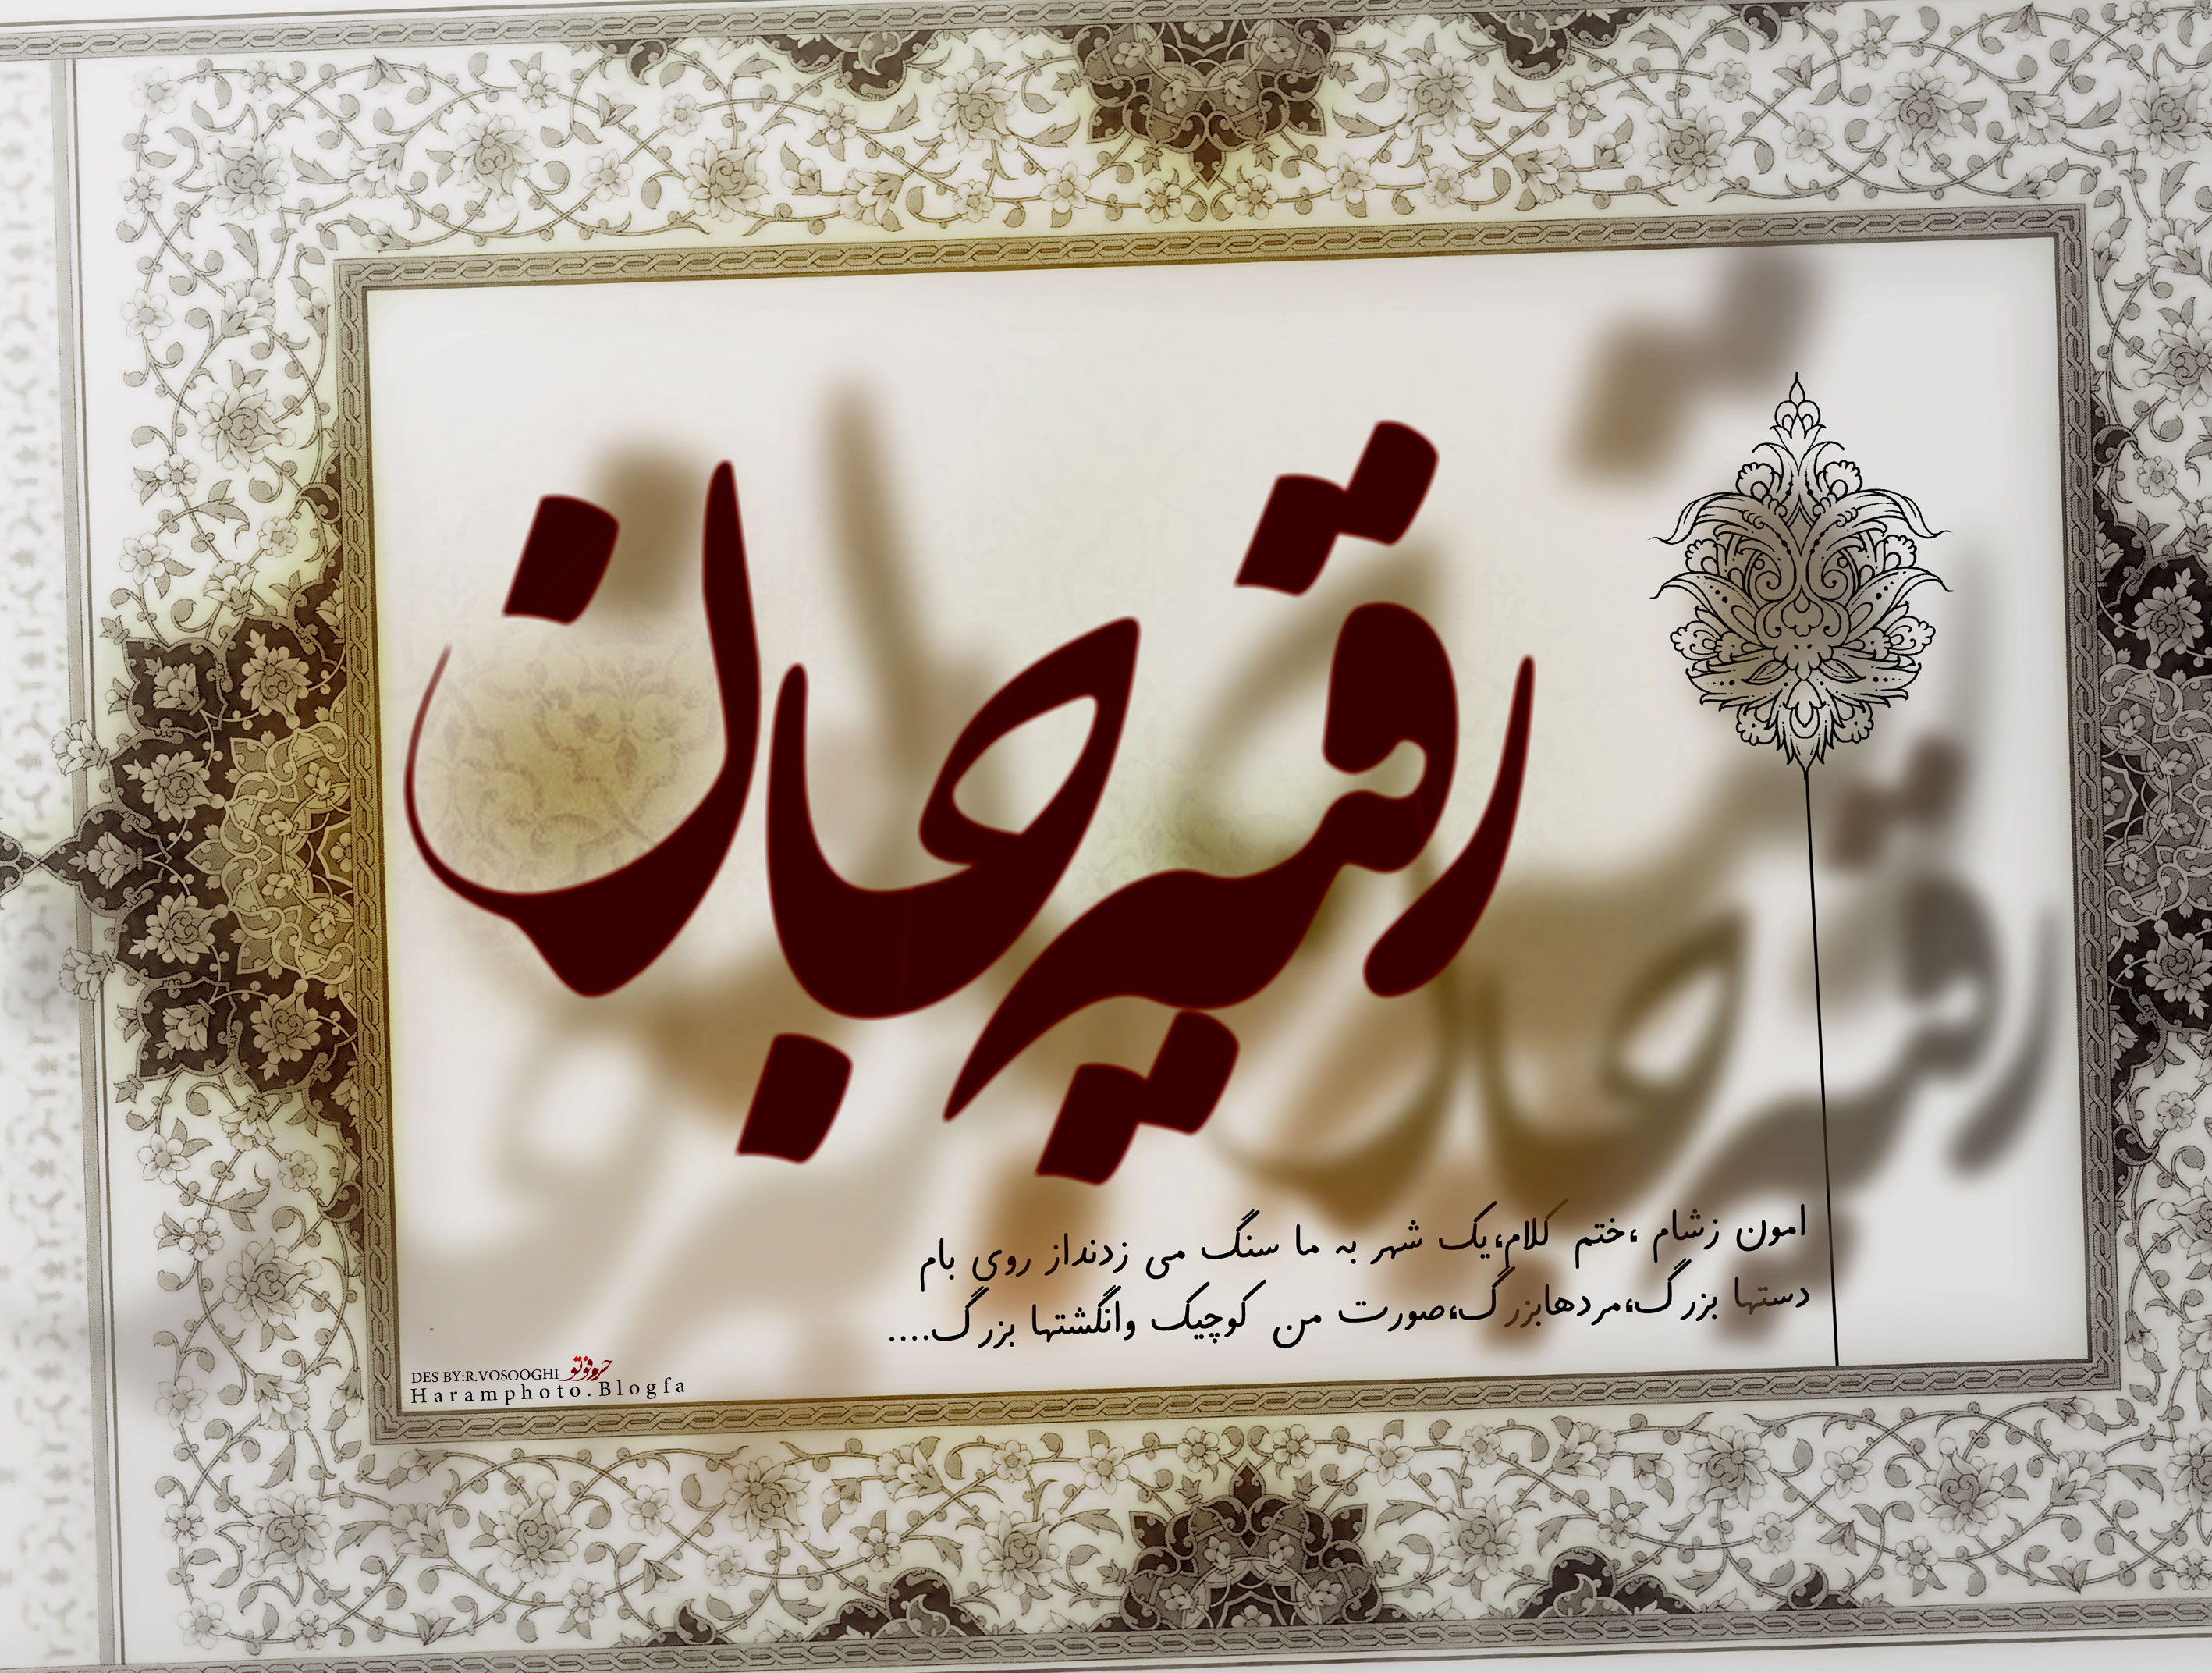 رقیه جان
امون زشام ،ختم کلام،یک شهر به ما سنگ می زدنداز روی بام
دستها بزرگ،مردهابزرگ،صورت من کوچیک وانگشتها بزرگ....
DES BY:R.VOSOOGHI حرم فوتو
Haramphoto.Blogfa